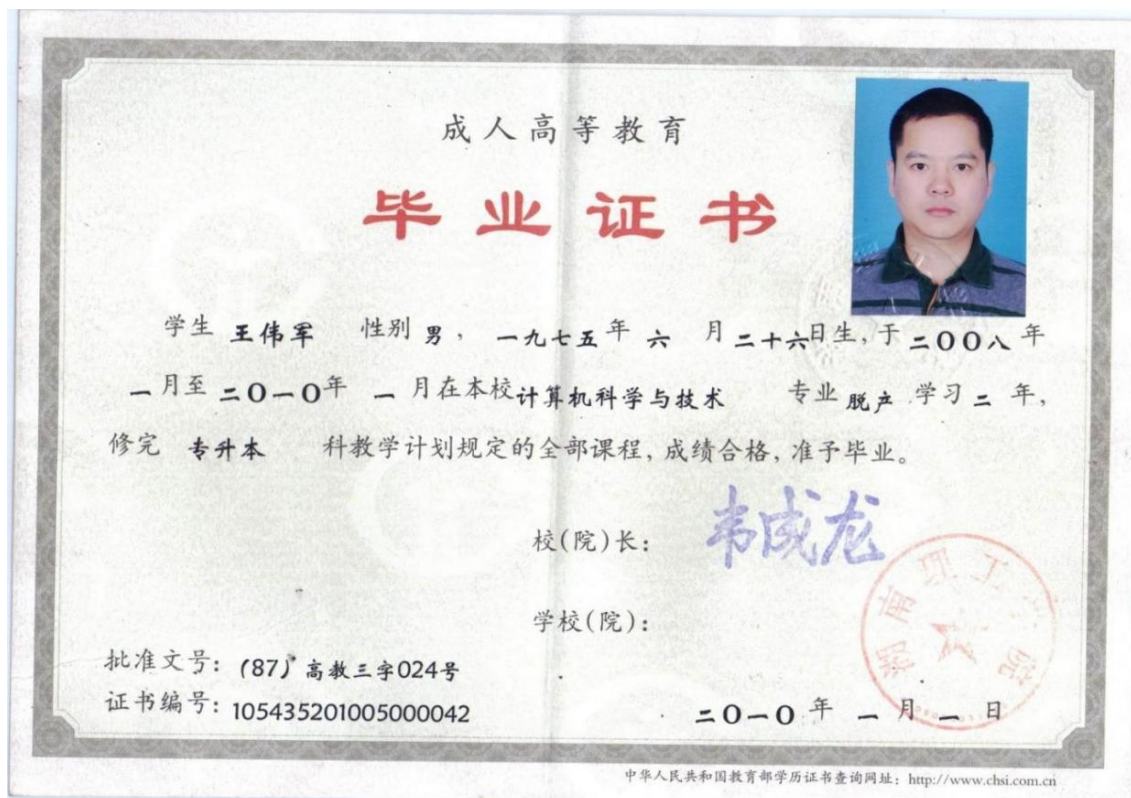 成人高等教育
毕业证书
学生 王伟军 性别 男, 一九七五年 六 月 二十六日生,于 二OO八 年
一 月至 二O一O年 一 月在本校计算机科学与技术 专业 脱产 学习 二 年,
修完 专升本 科教学计划规定的全部课程,成绩合格,准予毕业。
校(院)长: 韦成龙
学校(院):
湖南理工 院
批准文号: (87)高教三字024号
证书编号: 105435201005000042
二O一O 年 一 月 一 日
中华人民共和国教育部学历证书查询网址: http://www.chsi.com.cn